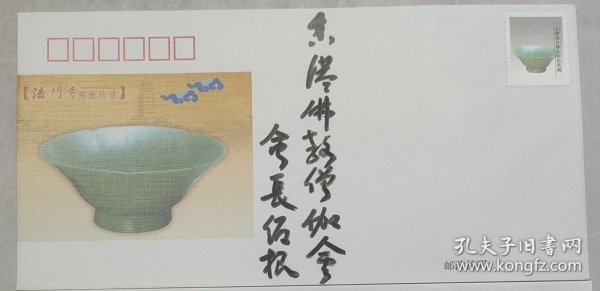 【法門寺佛教珍寶】
香港佛教僧伽會
會長紹根
孔夫子旧书网
www.kongfz.com